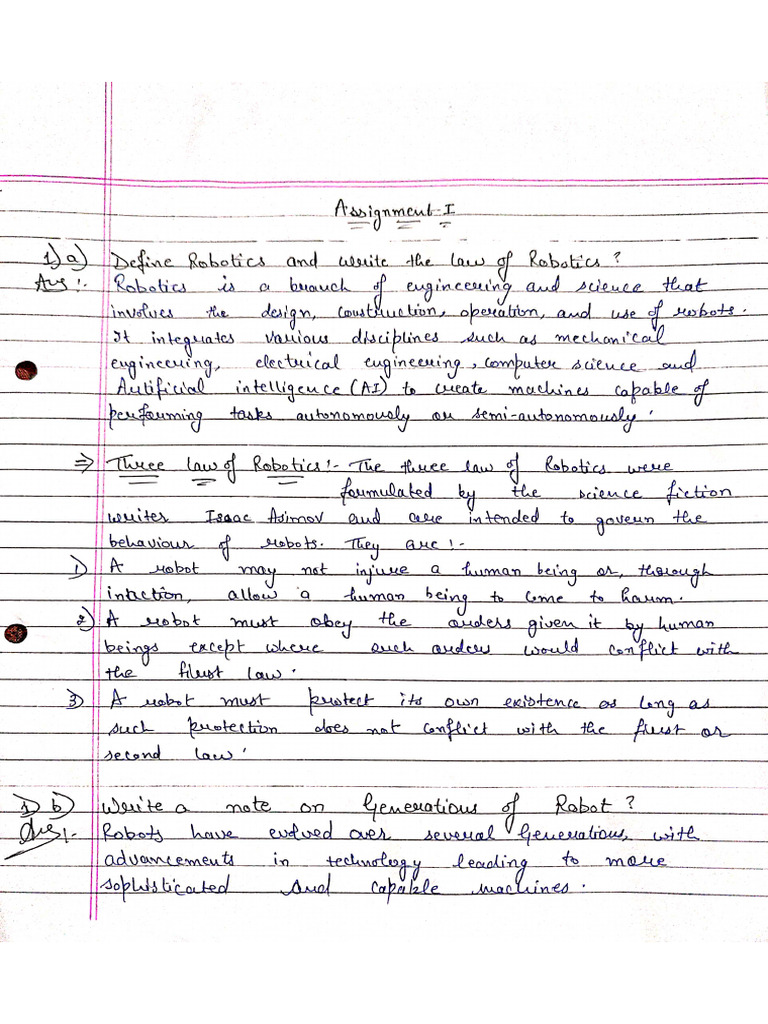 Assignment-I
1) a) Define Robotics and write the law of Robotics ?
Ans :- Robotics is a branch of engineering and science that
involves the design, construction, operation, and use of robots.
It integrates various disciplines such as mechanical
engineering, electrical engineering, computer science and
Artificial intelligence (AI) to create machines capable of
performing tasks autonomously or semi-autonomously.
⇒ Three law of Robotics :- The three law of Robotics were
formulated by the science fiction
writer Isaac Asimov and are intended to govern the
behaviour of robots. They are :-
1) A robot may not injure a human being or, thorough
intaction, allow a human being to come to harm.
2) A robot must obey the orders given it by human
beings except where such orders would conflict with
the first law.
3) A robot must protect its own existence as long as
such protection does not conflict with the first or
second law.
1) b) Write a note on Generations of Robot ?
Ans :- Robots have evolved over several Generations, with
advancements in technology leading to more
sophisticated and capable machines.